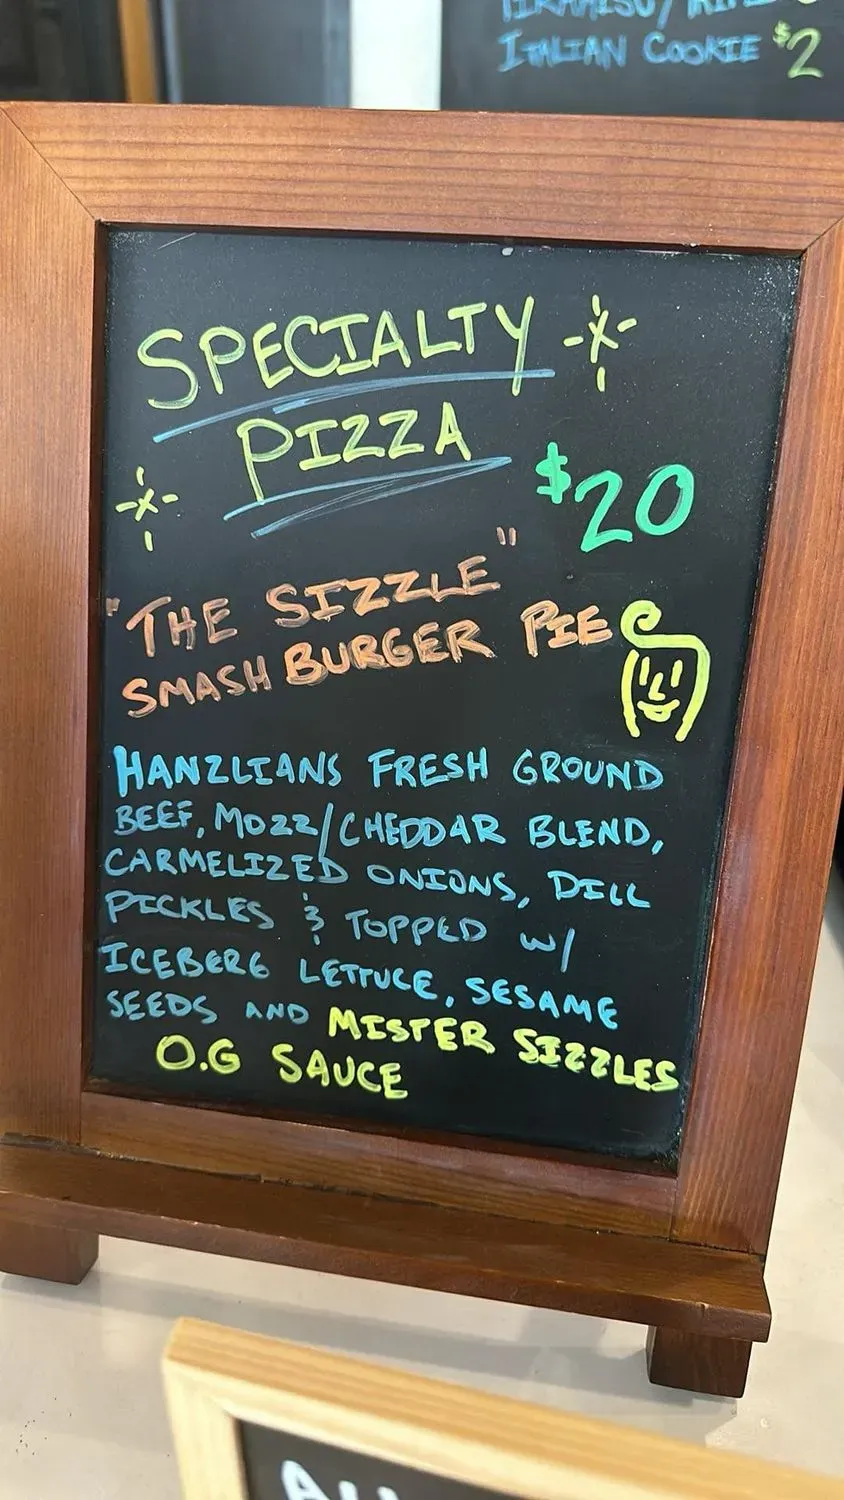 ITALIAN COOKIE $2
SPECIALTY
PIZZA
$20
"THE SIZZLE"
SMASH BURGER PIE
HANZLIANS FRESH GROUND
BEEF, MOZZ/CHEDDAR BLEND,
CARMELIZED ONIONS, DILL
PICKLES & TOPPED W/
ICEBERG LETTUCE, SESAME
SEEDS AND MISTER SIZZLES
O.G SAUCE